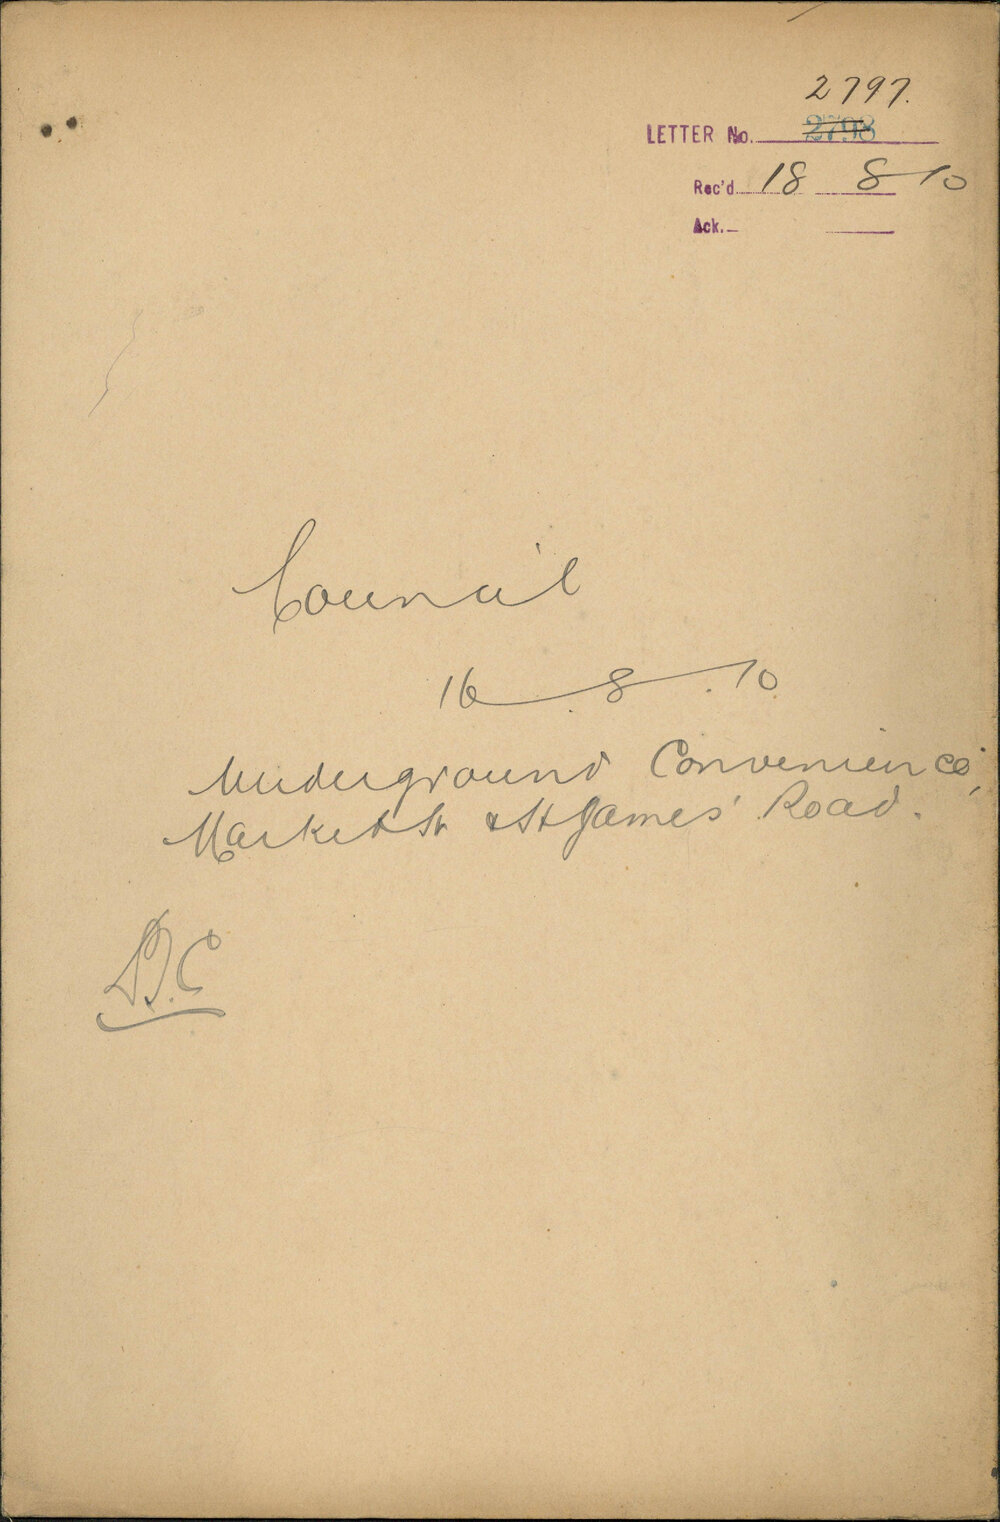 2797.
LETTER No. 2798
Rec'd 18 8 10
Ack.
Council
16.8.10
Underground Convenience,
Market St & St James' Road.
D.C